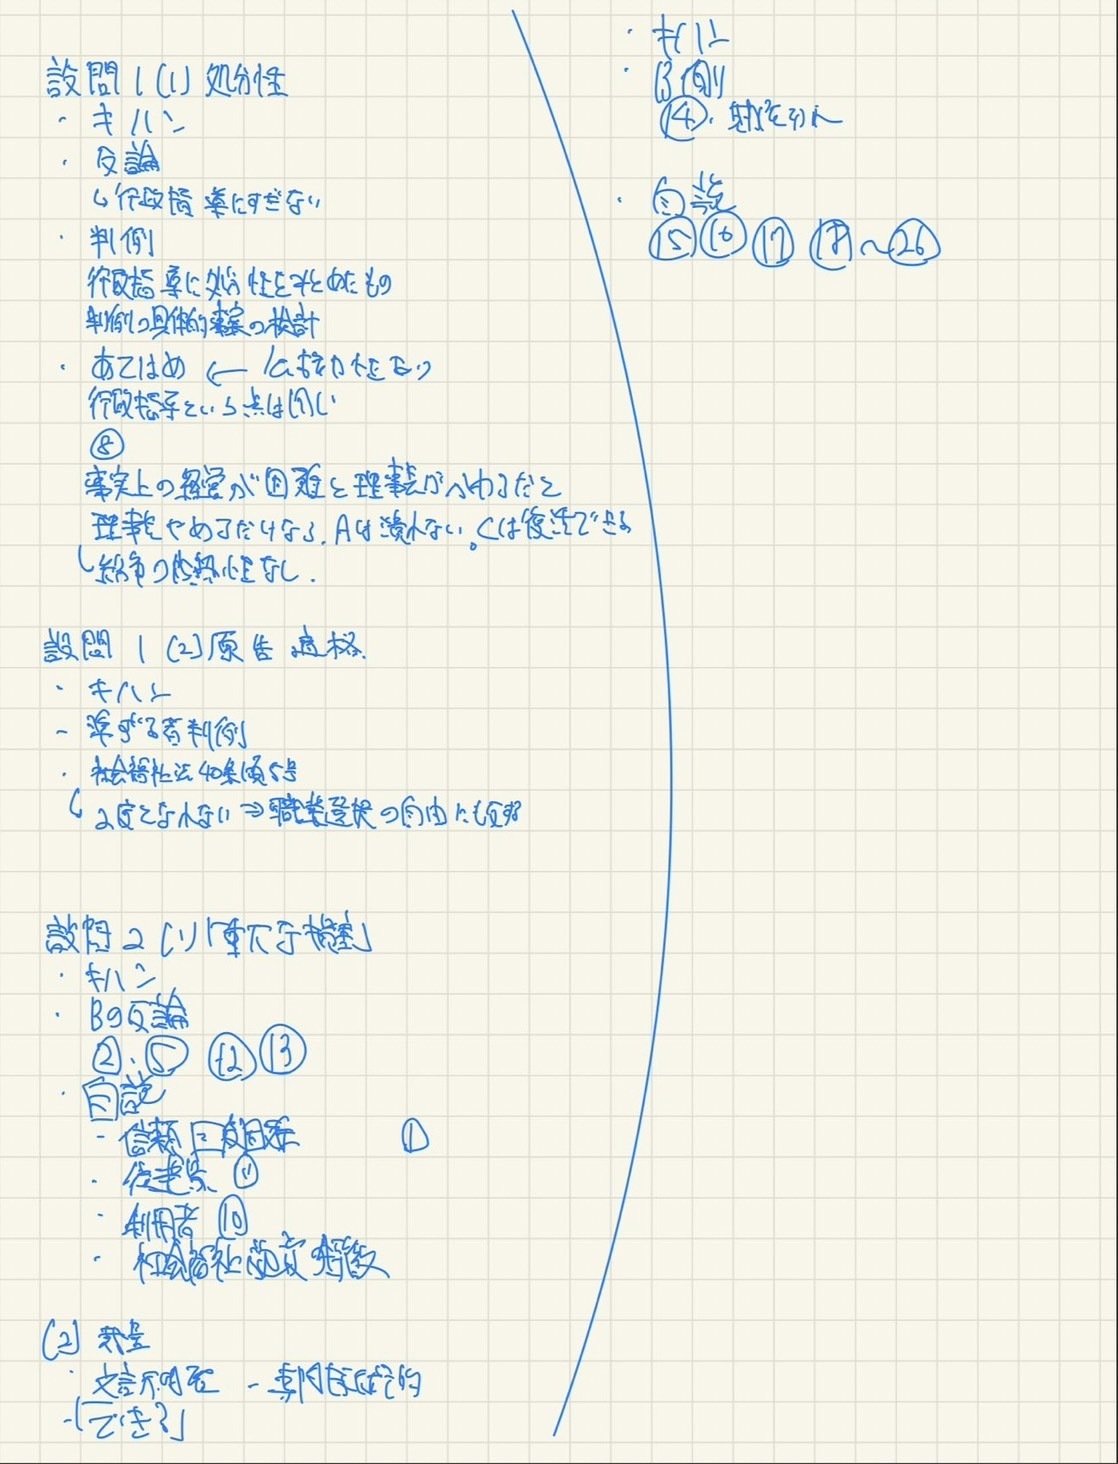 設問1(1)処分性
・キハン
・反論
↳行政指導にすぎない
・判例
行政指導に処分性をみとめたもの
判例の具体的事案の検討
・あてはめ ←
行政指導という点は同じ
⑧
事実上の経営が困難と理事長がかわるだと
理事長やめるだけなら、Aは潰れない。Cは復活できる
なし.
設問1(2)原告適格
・キハン
- 準ずる者判例
・社会福祉法40条1項5号
↳2度となれない⇒職業選択の自由にも反する
設問2(1)「重大な損害」
・キハン
・Bの反論
②・⑤ ⑫ ⑬
・自説
- 信頼回復困難 ①
・従業員 ⑪
・利用者 ⑩
・社会福祉法 解散
(2) 裁量
・文言不明確 - 専門技術的
-「できる」
・キハン
・B側
⑭・
・自説
⑮ ⑯ ⑰ ⑱〜㉖